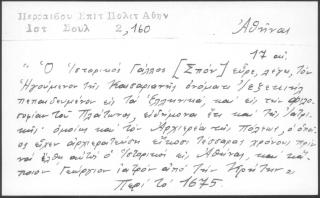 Περραιβου Επιτ Πολιτ Αθην
Ιστ Σουλ 2, 160
Ἀθῆναι
17 αι.
"Ὁ ἱστορικὸς Γάλλος [Σπὸν] εὗρε, λέγω, τὸν
Ἡγούμενον τῆς Καισαριανῆς ὀνόματι Ἰεζεκιὴλ
πεπαιδευμένον εἰς τὰ Ἑλληνικά, καὶ εἰς τὴν φιλο-
σοφίαν τοῦ Πλάτωνος, εἰδήμονα ἔτι καὶ τῆς Ἰατρι-
κῆς· ὁμοίως καὶ τὸν Ἀρχιερέα τῆς Πόλεως, ὁ ὁποῖ-
ος εἶχεν ἀρχιερατεύσῃ εἴκοσι τέσσαρας χρόνους πρὶν
νὰ ἔλθῃ αὐτὸς ὁ Ἱστορικὸς εἰς Ἀθήνας, καὶ κά-
ποιον Γεώργιον ἰατρὸν ἀπὸ τὴν Κρήτην"
Περὶ τὸ 1675.